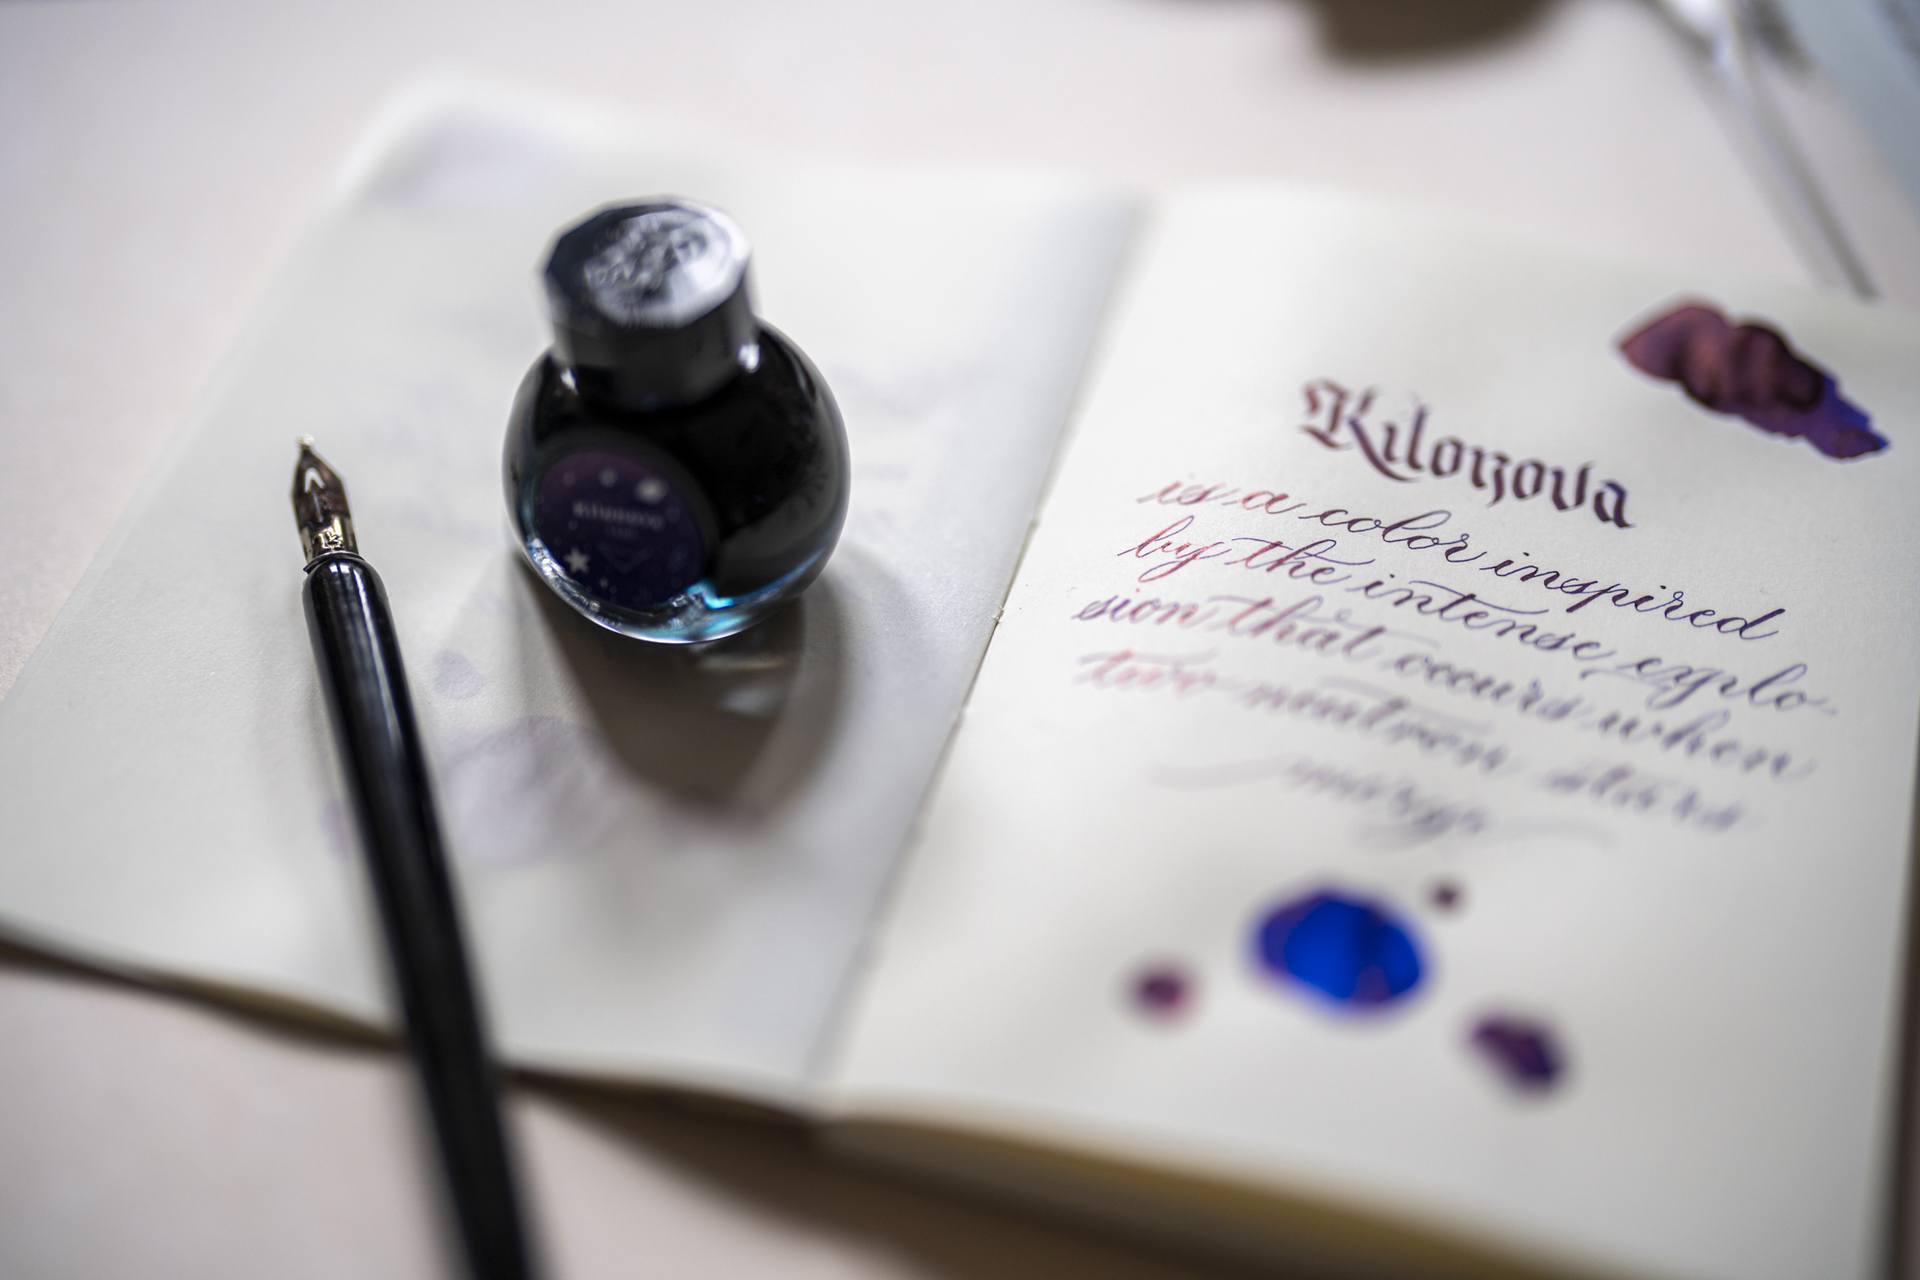 Kilonova
Kilonova
is a color inspired
by the intense explo-
sion that occurs when
two neutron stars
merge